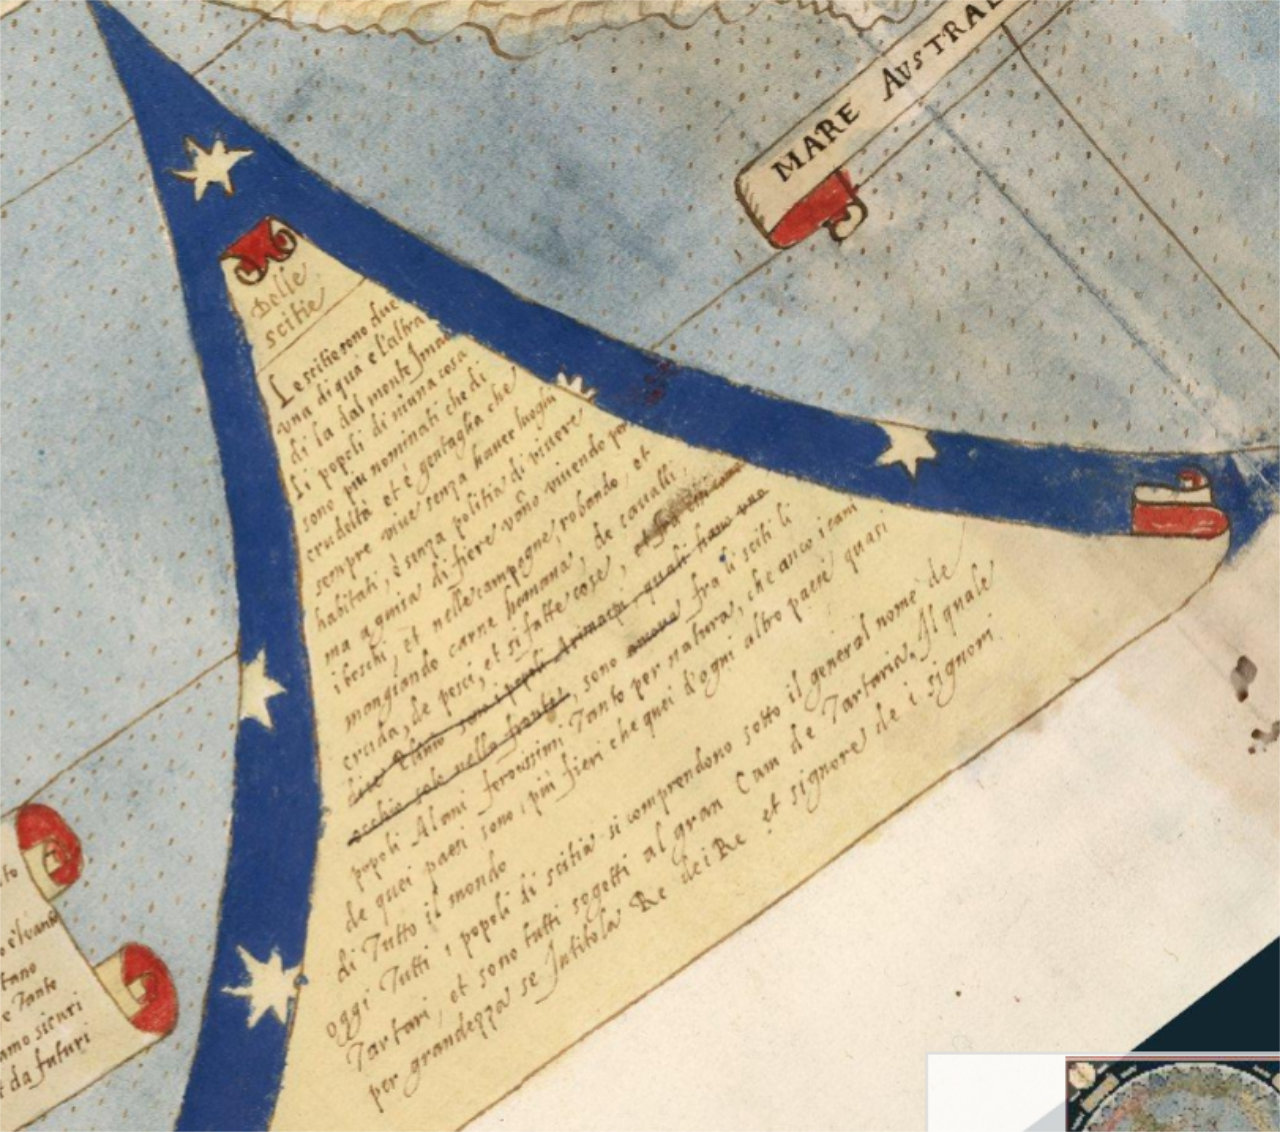 MARE AUSTRAL
Delle
scitie
Le scitie sono due
una di qua e l'altra
di la dal monte Imao
li popoli di niuna cosa
sono piu nominati che di
crudeltà et è gentaglia che
sempre vive senza haver luoghi
habitati, è senza politia di vivere
ma a guisa di fiere vano vivendo per
i boschi, et nelle campagne, robando, et
mangiando carne humana, de cavalli
cruda, de pesci, et si fatte cose,
sono i popoli Arimaspi, quali hano uno
occhio solo nella fronte, sono fra li sciti li
popoli Alani ferocissimi Tanto per natura, che anco i cani
de quei paesi sono i più fieri che quei d'ogni altro paese quasi
di Tutto il mondo
oggi Tutti i popoli di scitia si comprendono sotto il general nome de
Tartari, et sono tutti sogetti al gran Cam de Tartaria, Il quale
per grandezza se Intitola Re dei Re et signore de i signori
e Tante
amo sicuri
da futuri